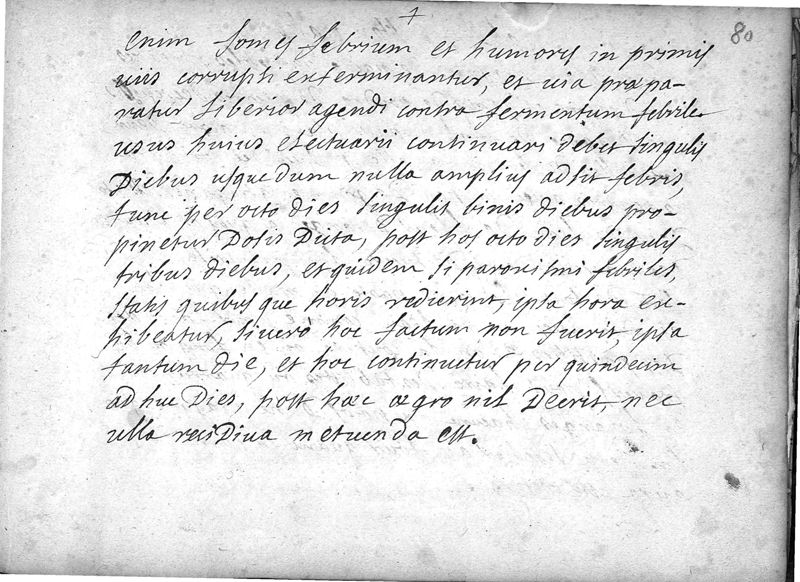 80
enim fomes febrium et humores in primis
viis corrupti exterminantur, et via præpa-
ratur liberior agendi contra fermentum febrile.
usus huius electuarii continuari debet singulis
Diebus usque dum nulla amplius adsit febris,
tunc per octo dies singulis binis diebus pro-
pinetur Dosis Dicta, post hos octo dies singulis
tribus diebus, et quidem si paroxismi febriles,
statis quibusque horis redierint, ipsa hora ex-
hibeatur, si verò hoc factum non fuerit, ipsa
tantum die, et hoc continuetur per quindecim
ad huc Dies, post hæc ægro nil Deerit, nec
ulla reciDiva metuenda est.